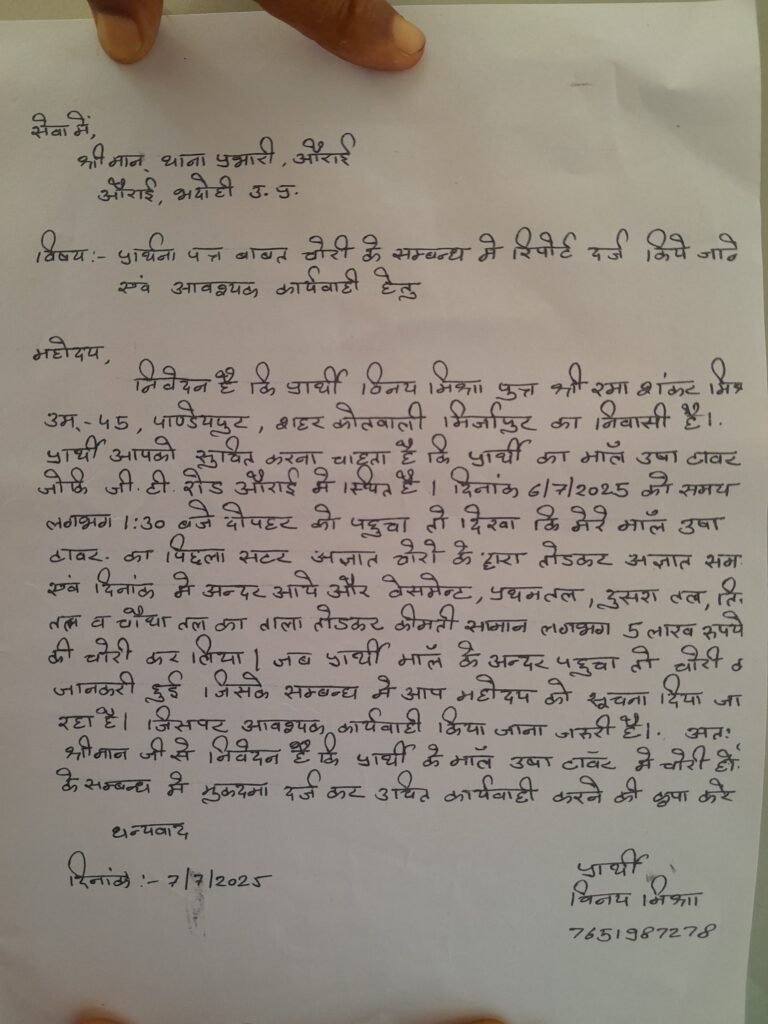 सेवा में,
श्रीमान् थाना प्रभारी, औराई
औराई, भदोही उ. प्र.
विषय:- प्रार्थना पत्र बाबत चोरी के सम्बन्ध मे रिपोर्ट दर्ज किये जाने
एवं आवश्यक कार्यवाही हेतु
महोदय,
निवेदन है कि प्रार्थी विनय मिश्रा पुत्र श्री रमा शंकर मिश्र
उम्र.-45, पाण्डेयपुर, शहर कोतवाली मिर्जापुर का निवासी है।.
प्रार्थी आपको सुचित करना चाहता है कि प्रार्थी का मॉल उषा टावर
जोकि जी. टी. रोड औराई मे स्थित है। दिनांक 6/7/2025 को समय
लगभग 1:30 बजे दोपहर को पहुचा तो देखा कि मेरे मॉल उषा
टावर. का पिछला सटर अज्ञात चोरो के द्वारा तोडकर अज्ञात सम
एवं दिनांक मे अन्दर आये और वेसमेन्ट, प्रथमतल, दुसरा तल,
तल व चौथा तल का ताला तोडकर कीमती सामान लगभग 5 लाख रुपये
की चोरी कर लिया। जब प्रार्थी मॉल के अन्दर पहुचा तो चोरी
जानकरी हुई जिसके सम्बन्ध मे आप महोदय को सूचना दिया जा
रहा है। जिसपर आवश्यक कार्यवाही किया जाना जरुरी है।. अतः
श्रीमान जी से निवेदन है कि प्रार्थी के मॉल उषा टॉवर मे चोरी
के सम्बन्ध मे मुकदमा दर्ज कर उचित कार्यवाही करने की कृपा करे
धन्यवाद
दिनांक:- 7/7/2025
प्रार्थी
विनय मिश्रा
7651987278